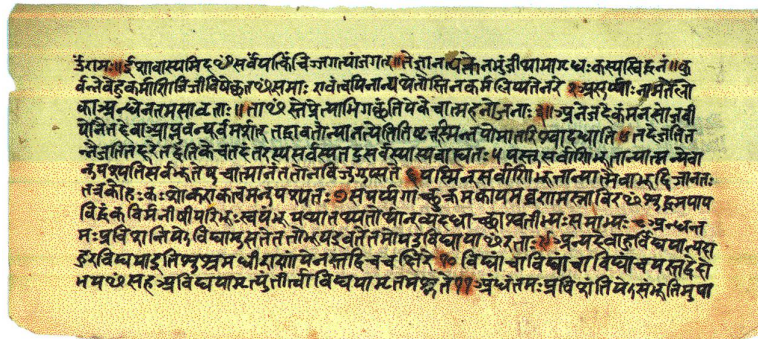 उँराम॥ईशावास्यमिदꣳसर्वंयत्किंचिज्जगत्यांजगत्॥तेनत्यक्तेनभुंजीथामागृधःकस्यस्विद्धनं॥कु
र्वन्नेवेहकर्माणिजिजीविषेछतꣳसमाःएवंत्वयिनान्यथेतोस्तिनकर्मलिप्यतेनरे२असुर्य्यानामतेलो
काअन्धेनतमसावृताः॥ताꣳस्तेप्रेत्याभिगछंतियेकेचात्महनोजनाः३॥अनेजदेकंमनसोजवी
योनैतद्देवाआप्नुवन्पूर्वमर्शत्तद्धावतोन्यानत्येतितिष्ठत्तस्मिन्नपोमातरिश्वादधाति॥तदेजतित
न्नैजतितद्दूरेतद्वंतिकेतदंतरस्यसर्वस्यतदुसर्वस्यास्यबाह्यतः५यस्तुसर्वाणिभूतान्यात्मन्येवा
नुपश्यतिसर्वभूतेषुचात्मानंततोनविजुगुप्सते६यस्मिन्सर्वाणिभूतान्यात्मैवाभूद्विजानतः
तत्रकोमोहःकःशोकएकत्वमनुपश्यतः७सपर्यगाच्छुक्रमकायमव्रणमस्नाविरꣳशुद्धमपाप
विद्धंकविर्मनीषीपरिभूःस्वयंभूर्याथातथ्यतोर्थान्व्यदधाच्छाश्वतीभ्यःसमाभ्यः८अन्धन्त
मःप्रविशन्तियेविद्यामुपासतेततोभूयइवतेतमोयउविद्यायाꣳरताः९अन्यदेवाहुर्विद्ययान्यदा
हुरविद्ययाइतिशुश्रुमधीराणांयेनस्तद्विचचक्षिरे१०विद्यांचाविद्यांचयस्तद्वेदो
भयꣳसहअविद्ययामृत्युंतीर्त्वाविद्ययामृतमश्नुते११अंधंतमःप्रविशंतियेसंभूतिमुपा